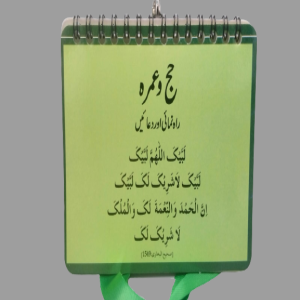 حج وعمرہ
راہنمائی اور دعائیں
لَبَّيْکَ اَللّٰهُمَّ لَبَّيْکَ
لَبَّيْکَ لَا شَرِيْکَ لَکَ لَبَّيْکَ
اِنَّ الْحَمْدَ وَالنِّعْمَةَ لَکَ وَالْمُلْکَ
لَا شَرِيْکَ لَکَ
(صحیح البخاری:1549)